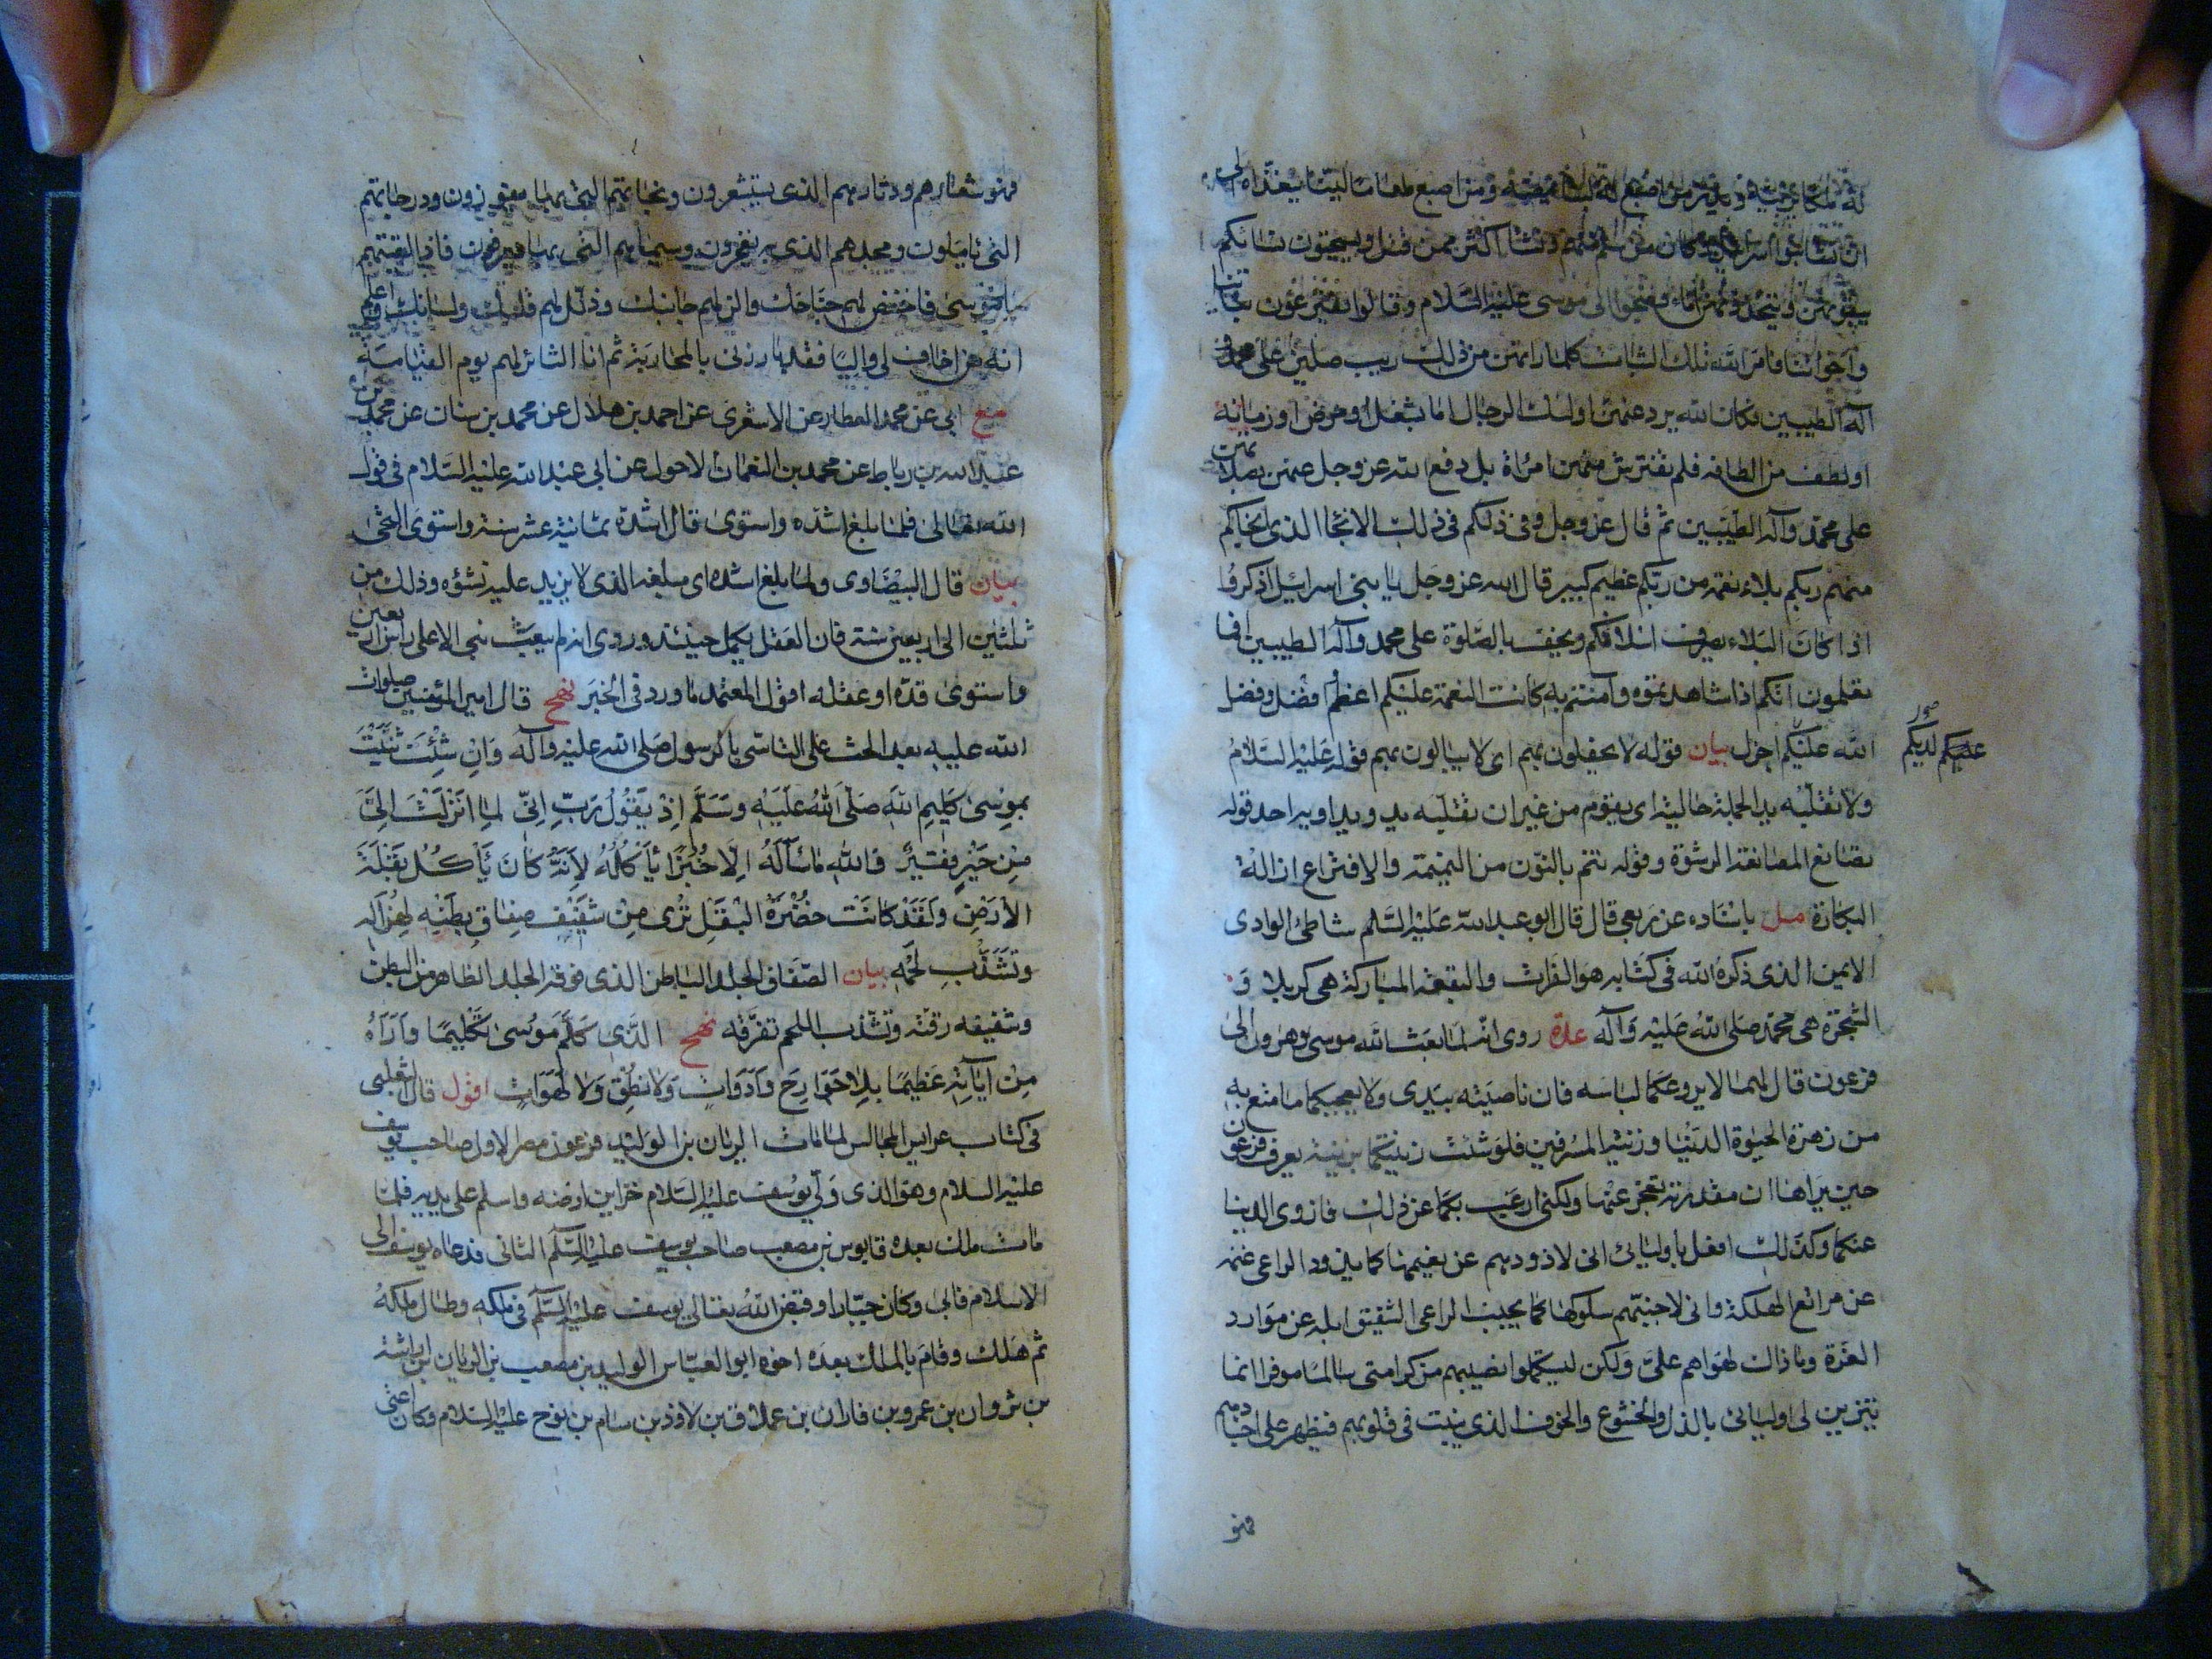 ان نشأ
يبقونهن ويتخذونهن اماء فضجوا الى موسى عليه السلام وقالوا يفترعون بناتنا
واخواتنا فامر الله تلك البنات كلما رابهن من ذلك ريب صلين على محمد و
آله الطيبين فكان الله يرد عنهن اولئك الرجال اما بشغل او مرض او زمانة
او لطف من الطافه فلم يفترش منهن امرأة بل دفع الله عز وجل عنهن بصلاتهن
على محمد وآله الطيبين ثم قال عز وجل وفى ذلكم فى ذلك الانجا الذى انجاكم
منهم ربكم بلاء نعمة من ربكم عظيم كبير قال الله عز وجل يا بنى اسرائيل اذكروا
اذا كان البلاء يصرف اسلافكم ويخف بالصلوة على محمد وآله الطيبين افما
تعلمون انكم اذا شاهدتموه وآمنتم به كانت النعمة عليكم اعظم افضل وفضل
الله عليكم اجزل بيان قوله لا يحفلون بهم اى لا يبالون بهم قوله عليه السلام
عليكم لديكم
ولا تقلبه يد الجملة حالية اى يقوم من غير ان تقلبه يد ويد او يراحد قوله
بصانع المصانعة الرشوة وقوله تنم بالنون من النميمة والافتراع ازالة
البكارة مل باسناده عن ربعى قال قال ابو عبد الله عليه السلم شاطئ الوادى
الايمن الذى ذكره الله فى كتابه هو الفرات والبقعة المباركة هى كربلا و
الشجرة هى محمد صلى الله عليه وآله عدة روى انه لما بعث الله موسى وهرون الى
فرعون قال لهما لا يروعكما لباسه فان ناصيته بيدى ولا يعجبكما ما متع به
من زهرة الحيوة الدنيا وزينة المسرفين فلو شئت زينتكما بزينة يعرف فرعون
حين يراها ان مقدرته تعجز عنها ولكنى ارغب بكما عن ذلك فازوى الدنيا
عنكما وكذلك افعل باوليائى انى لاذودهم عن نعيمها كما يذود الراعى غنمه
عن مراتع الهلكة وانى لاجنبهم سلوكها كما يجنب الراعى الشفيق ابله عن موارد
الغرة وما ذاك لهوانهم على ولكن ليستكملوا نصيبهم من كرامتى سالما موفرا انما
يتزين لى اوليائى بالذل والخشوع والخوف الذى ينبت فى قلوبهم فيظهر على اجسادهم
فهو
فهو شعارهم ودثارهم الذى يستشعرون ونجاتهم التى بها يفوزون ودرجاتهم
التى يأملون ومجدهم الذى به يفخرون وسيماهم التى بها يعرفون فاذا لقيتهم
يا موسى فاخفض لهم جناحك والن لهم جانبك وذلل لهم قلبك ولسانك واعلم
انه من اخاف لى وليا فقد بارزنى بالمحاربة ثم انا الثائر لهم يوم القيامة
مع ابى عن محمد العطار عن الاشعرى عن احمد بن هلال عن محمد بن سنان عن محمد بن
عبد الله بن رباط عن محمد بن النعمان الاحول عن ابى عبد الله عليه السلام فى قول
الله تعالى فلما بلغ اشده واستوى قال اشده ثمانية عشر سنة واستوى التحى
بيان قال البيضاوى ولما بلغ اشده اى مبلغه الذى لا يزيد عليه نشؤه وذلك من
ثلثين الى اربعين سنة فان العقل يكمل حينئذ وروى انه لم يبعث نبى الا على راس اربعين
واستوى قده او عقله اقول المعتمد ما ورد فى الخبر نهج قال امير المؤمنين صلوات
الله عليه بعد الحث على التاسى بالرسول صلى الله عليه وآله وان شئت ثنيت
بموسى كليم الله صلى الله عليه وسلم اذ يقول رب انى لما انزلت الى
من خير فقير فوالله ما سأله الا خبزا يأكله لانه كان يأكل بقلة
الارض ولقد كانت خضرة البقل ترى من شفيف صفاق بطنه لهزاله
وتشذب لحمه بيان الصفاق الجلد الباطن الذى فوقه الجلد الظاهر من البطن
وشفيفه رقته وتشذب اللحم تفرقه نهج الذى كلم موسى تكليما واراه
من آياته عظيما بلا جوارح وادوات ولا نطق ولا لهوات اقول قال الثعلبى
فى كتاب عرايس المجالس لما مات الريان بن الوليد فرعون مصر الاول صاحب يوسف
عليه السلام وهو الذى ولى يوسف عليه السلام خزاين ارضه واسلم على يديه فلما
مات ملك بعده قابوس بن مصعب صاحب يوسف عليه السلم الثانى فدعاه يوسف الى
الاسلام فابى وكان جبارا وقبض الله تعالى يوسف عليه السلم فى ملكه وطال ملكه
ثم هلك وقام بالملك بعده اخوه ابو العباس الوليد بن مصعب بن الريان بن اراشة
بن ثروان بن عمرو بن فاران بن عملاق بن لاوذ بن سام بن نوح عليه السلام وكان اعتى